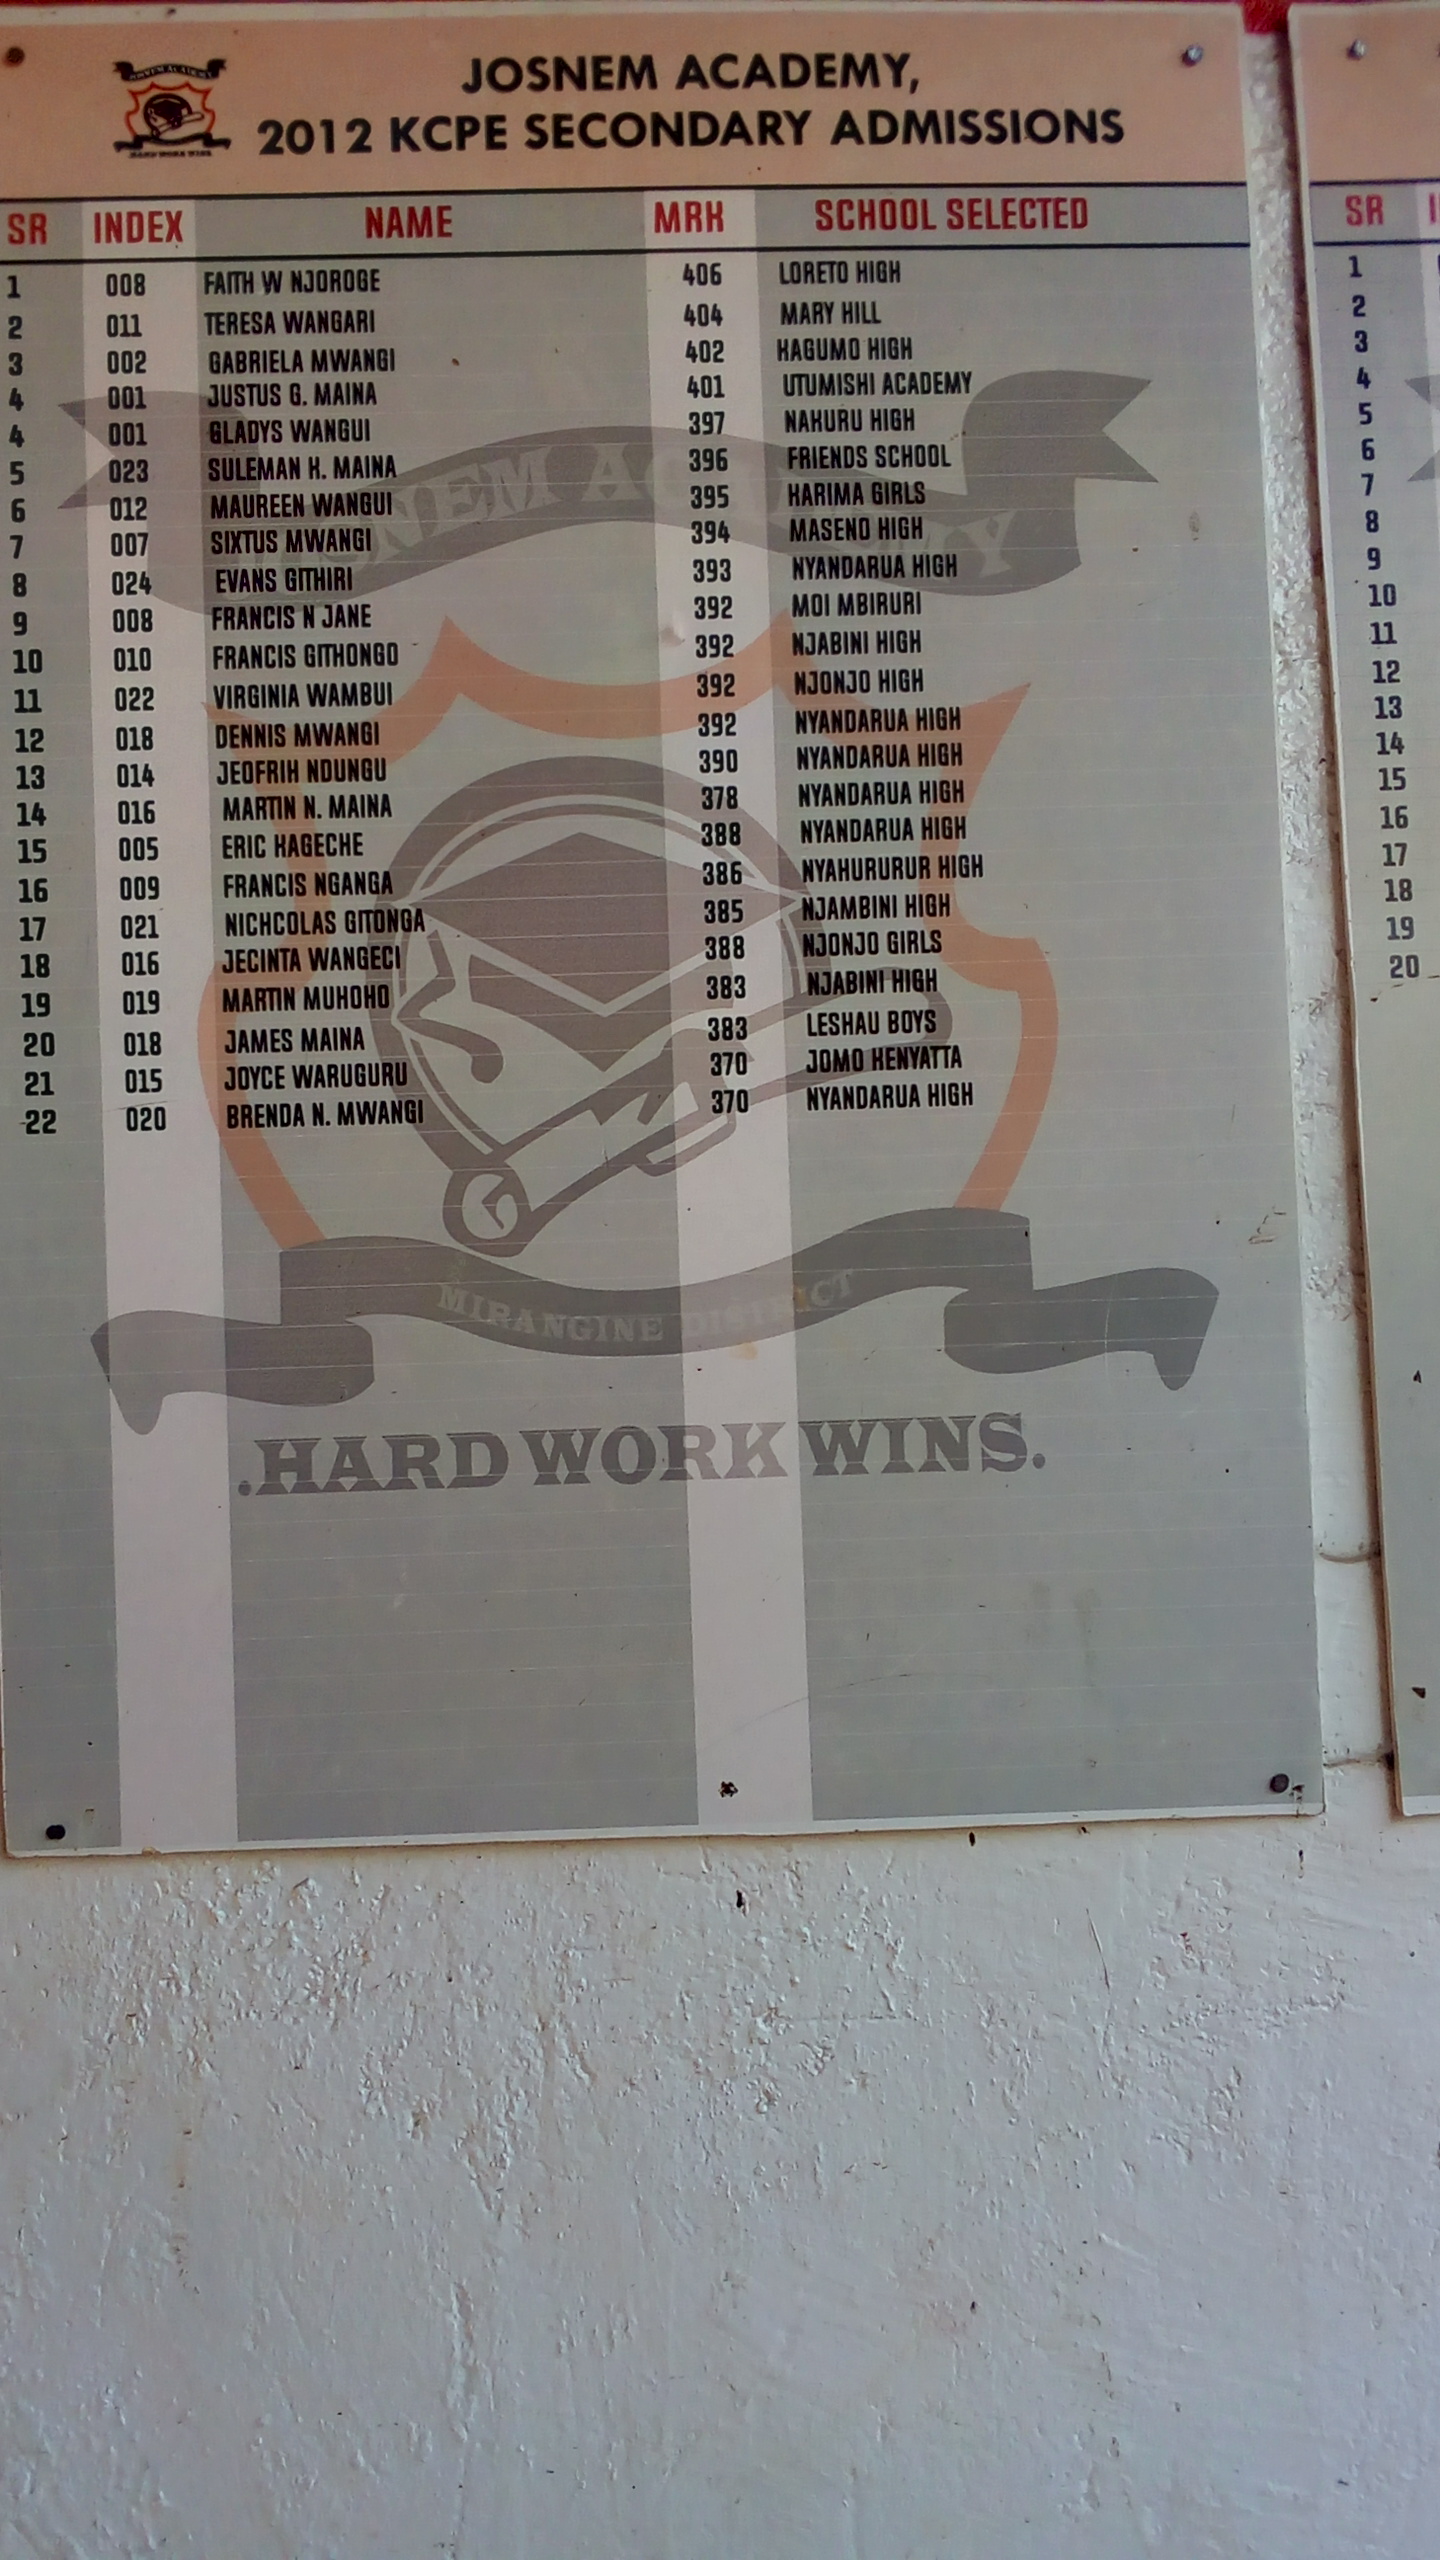 JOSNEM ACADEMY,
2012 KCPE SECONDARY ADMISSIONS
SR INDEX NAME MRK SCHOOL SELECTED
1 008 FAITH W NJOROGE 406 LORETO HIGH
2 011 TERESA WANGARI 404 MARY HILL
3 002 GABRIELA MWANGI 402 KAGUMO HIGH
4 001 JUSTUS G. MAINA 401 UTUMISHI ACADEMY
4 001 GLADYS WANGUI 397 NAKURU HIGH
5 023 SULEMAN K. MAINA 396 FRIENDS SCHOOL
6 012 MAUREEN WANGUI 395 KARIMA GIRLS
7 007 SIXTUS MWANGI 394 MASENO HIGH
8 024 EVANS GITHIRI 393 NYANDARUA HIGH
9 008 FRANCIS N JANE 392 MOI MBIRURI
10 010 FRANCIS GITHONGO 392 NJABINI HIGH
11 022 VIRGINIA WAMBUI 392 NJONJO HIGH
12 018 DENNIS MWANGI 392 NYANDARUA HIGH
13 014 JEOFRIH NDUNGU 390 NYANDARUA HIGH
14 016 MARTIN N. MAINA 378 NYANDARUA HIGH
15 005 ERIC KAGECHE 388 NYANDARUA HIGH
16 009 FRANCIS NGANGA 386 NYAHURURUR HIGH
17 021 NICHCOLAS GITONGA 385 NJAMBINI HIGH
18 016 JECINTA WANGECI 388 NJONJO GIRLS
19 019 MARTIN MUHOHO 383 NJABINI HIGH
20 018 JAMES MAINA 383 LESHAU BOYS
21 015 JOYCE WARUGURU 370 JOMO KENYATTA
22 020 BRENDA N. MWANGI 370 NYANDARUA HIGH
MIRANGINE DISTRICT
.HARD WORK WINS.
SR
1
2
3
4
5
6
7
8
9
10
11
12
13
14
15
16
17
18
19
20